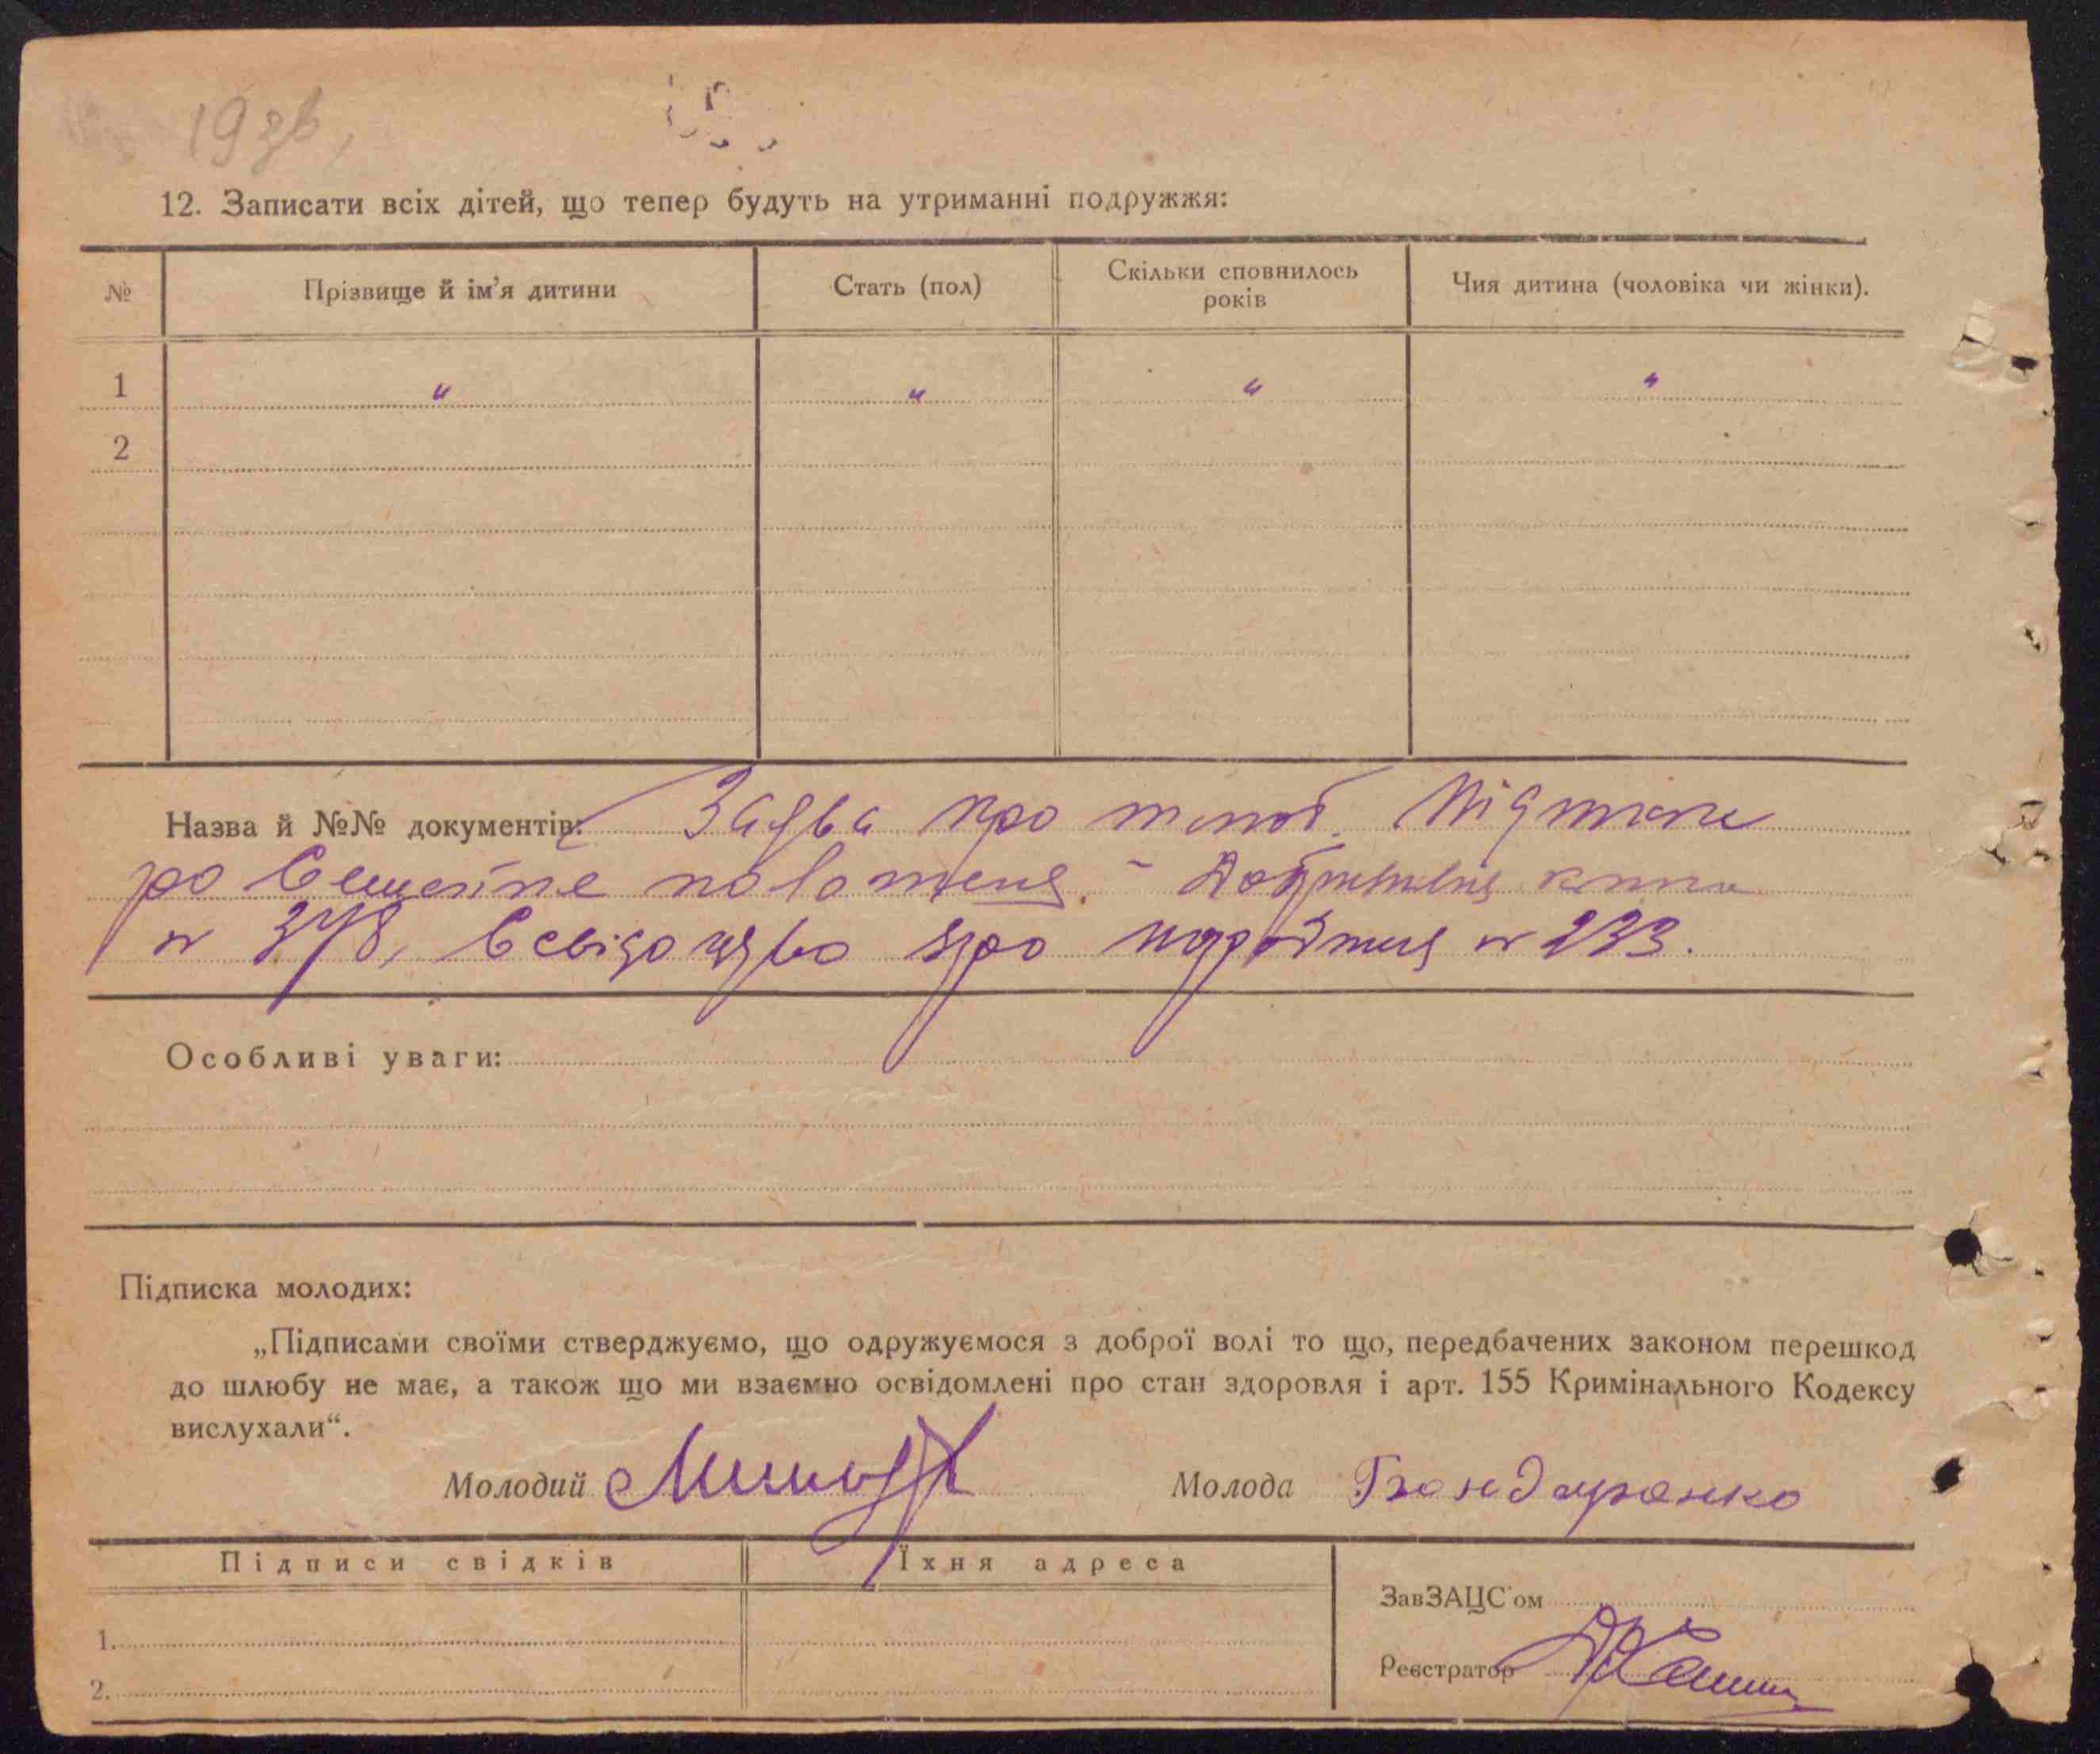 19 зв,
12. Записати всіх дітей, що тепер будуть на утриманні подружжя:
№ Прізвище й ім'я дитини Стать (пол) Скільки сповнилось років Чия дитина (чоловіка чи жінки).
1 " " " "
2
Назва й №№ документів: Заява про
про Сімейне
№ 378, Свідоцтво про народження № 233.
Особливі уваги:
Підписка молодих:
„Підписами своїми стверджуємо, що одружуємося з доброї волі то що, передбачених законом перешкод
до шлюбу не має, а також що ми взаємно освідомлені про стан здоровля і арт. 155 Кримінального Кодексу
вислухали“.
Молодий Молода Бондаренко
Підписи свідків Їхня адреса
ЗавЗАЦС'ом
1.
Реєстратор
2.